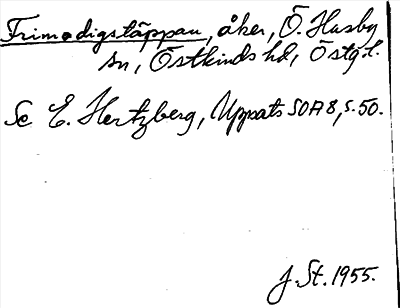 Frimodigstäppan, åker, Ö. Husby
sn, Östkinds hd, Östgöl.
Se E. Hertzberg, Uppsats SOA 8, s. 50.
J. St. 1955.